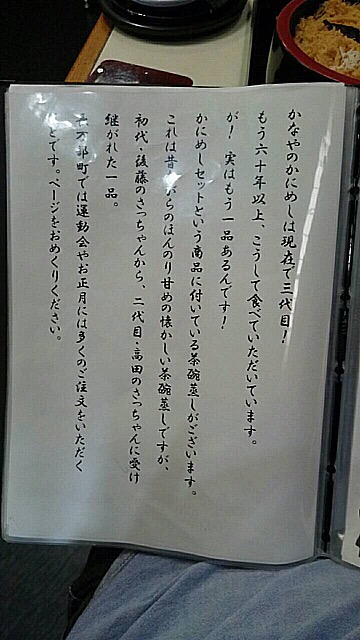 かなやのかにめしは現在で三代目!
もう六十年以上、こうして食べていただいています。
が! 実はもう一品あるんです!
かにめしセットという商品に付いている茶碗蒸しがございます。
これは昔ながらのほんのり甘めの懐かしい茶碗蒸しですが、
初代・後藤のさっちゃんから、二代目・高田のさっちゃんに受け
継がれた一品。
万部町では運動会やお正月には多くのご注文をいただく
どです。ページをおめくりください。